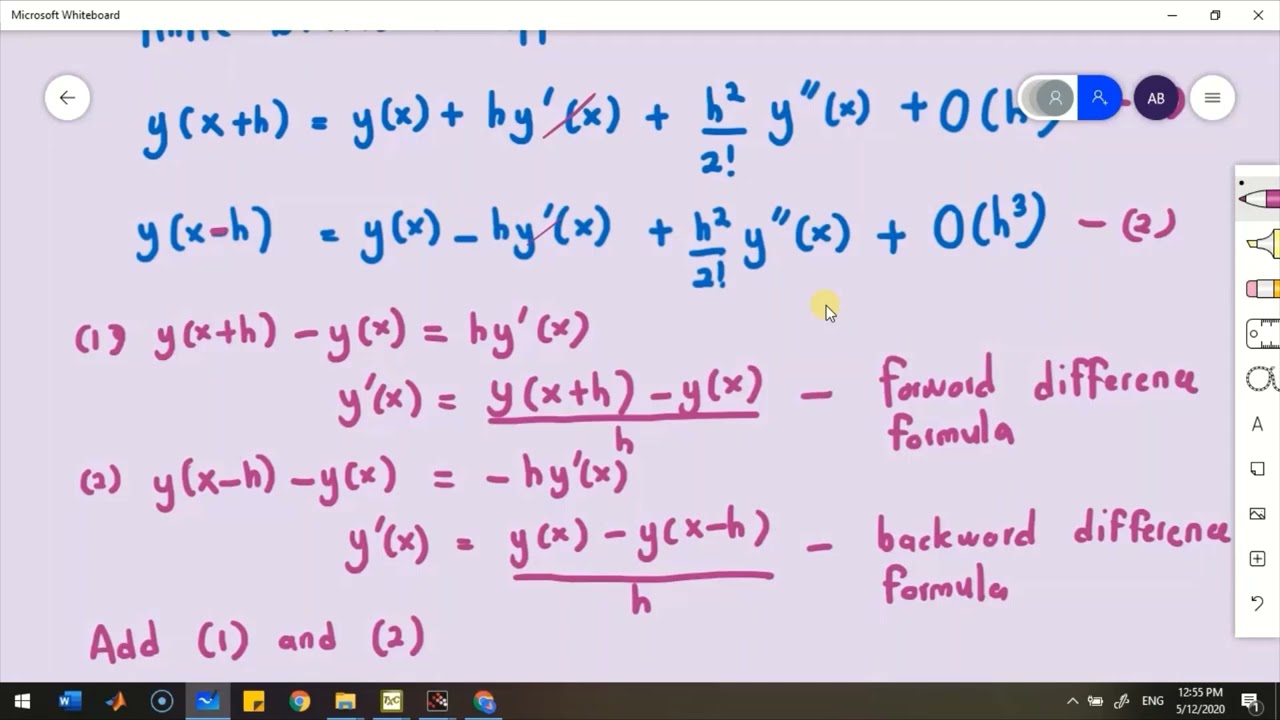 Microsoft Whiteboard
AB
y(x+h) = y(x) + hy'(x) + h²/2! y''(x) + O(h
y(x-h) = y(x) - hy'(x) + h²/2! y''(x) + O(h³) - (2)
(1) y(x+h) - y(x) = hy'(x)
y'(x) = y(x+h) - y(x) / h - forword difference
formula
(2) y(x-h) - y(x) = -hy'(x)
y'(x) = y(x) - y(x-h) / h - backword difference
formula
Add (1) and (2)
A
ENG
12:55 PM
5/12/2020